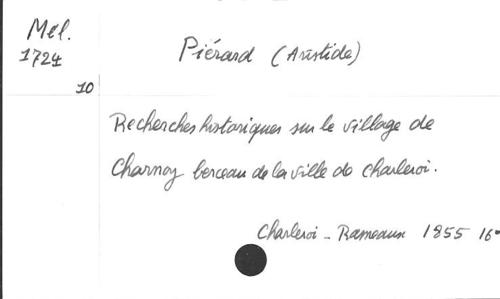 Mél.
1724
10
Piérard (Aristide)
Recherches historiques sur le village de
Charnoy berceau de la ville de Charleroi.
Charleroi - Rameaux 1855 16°